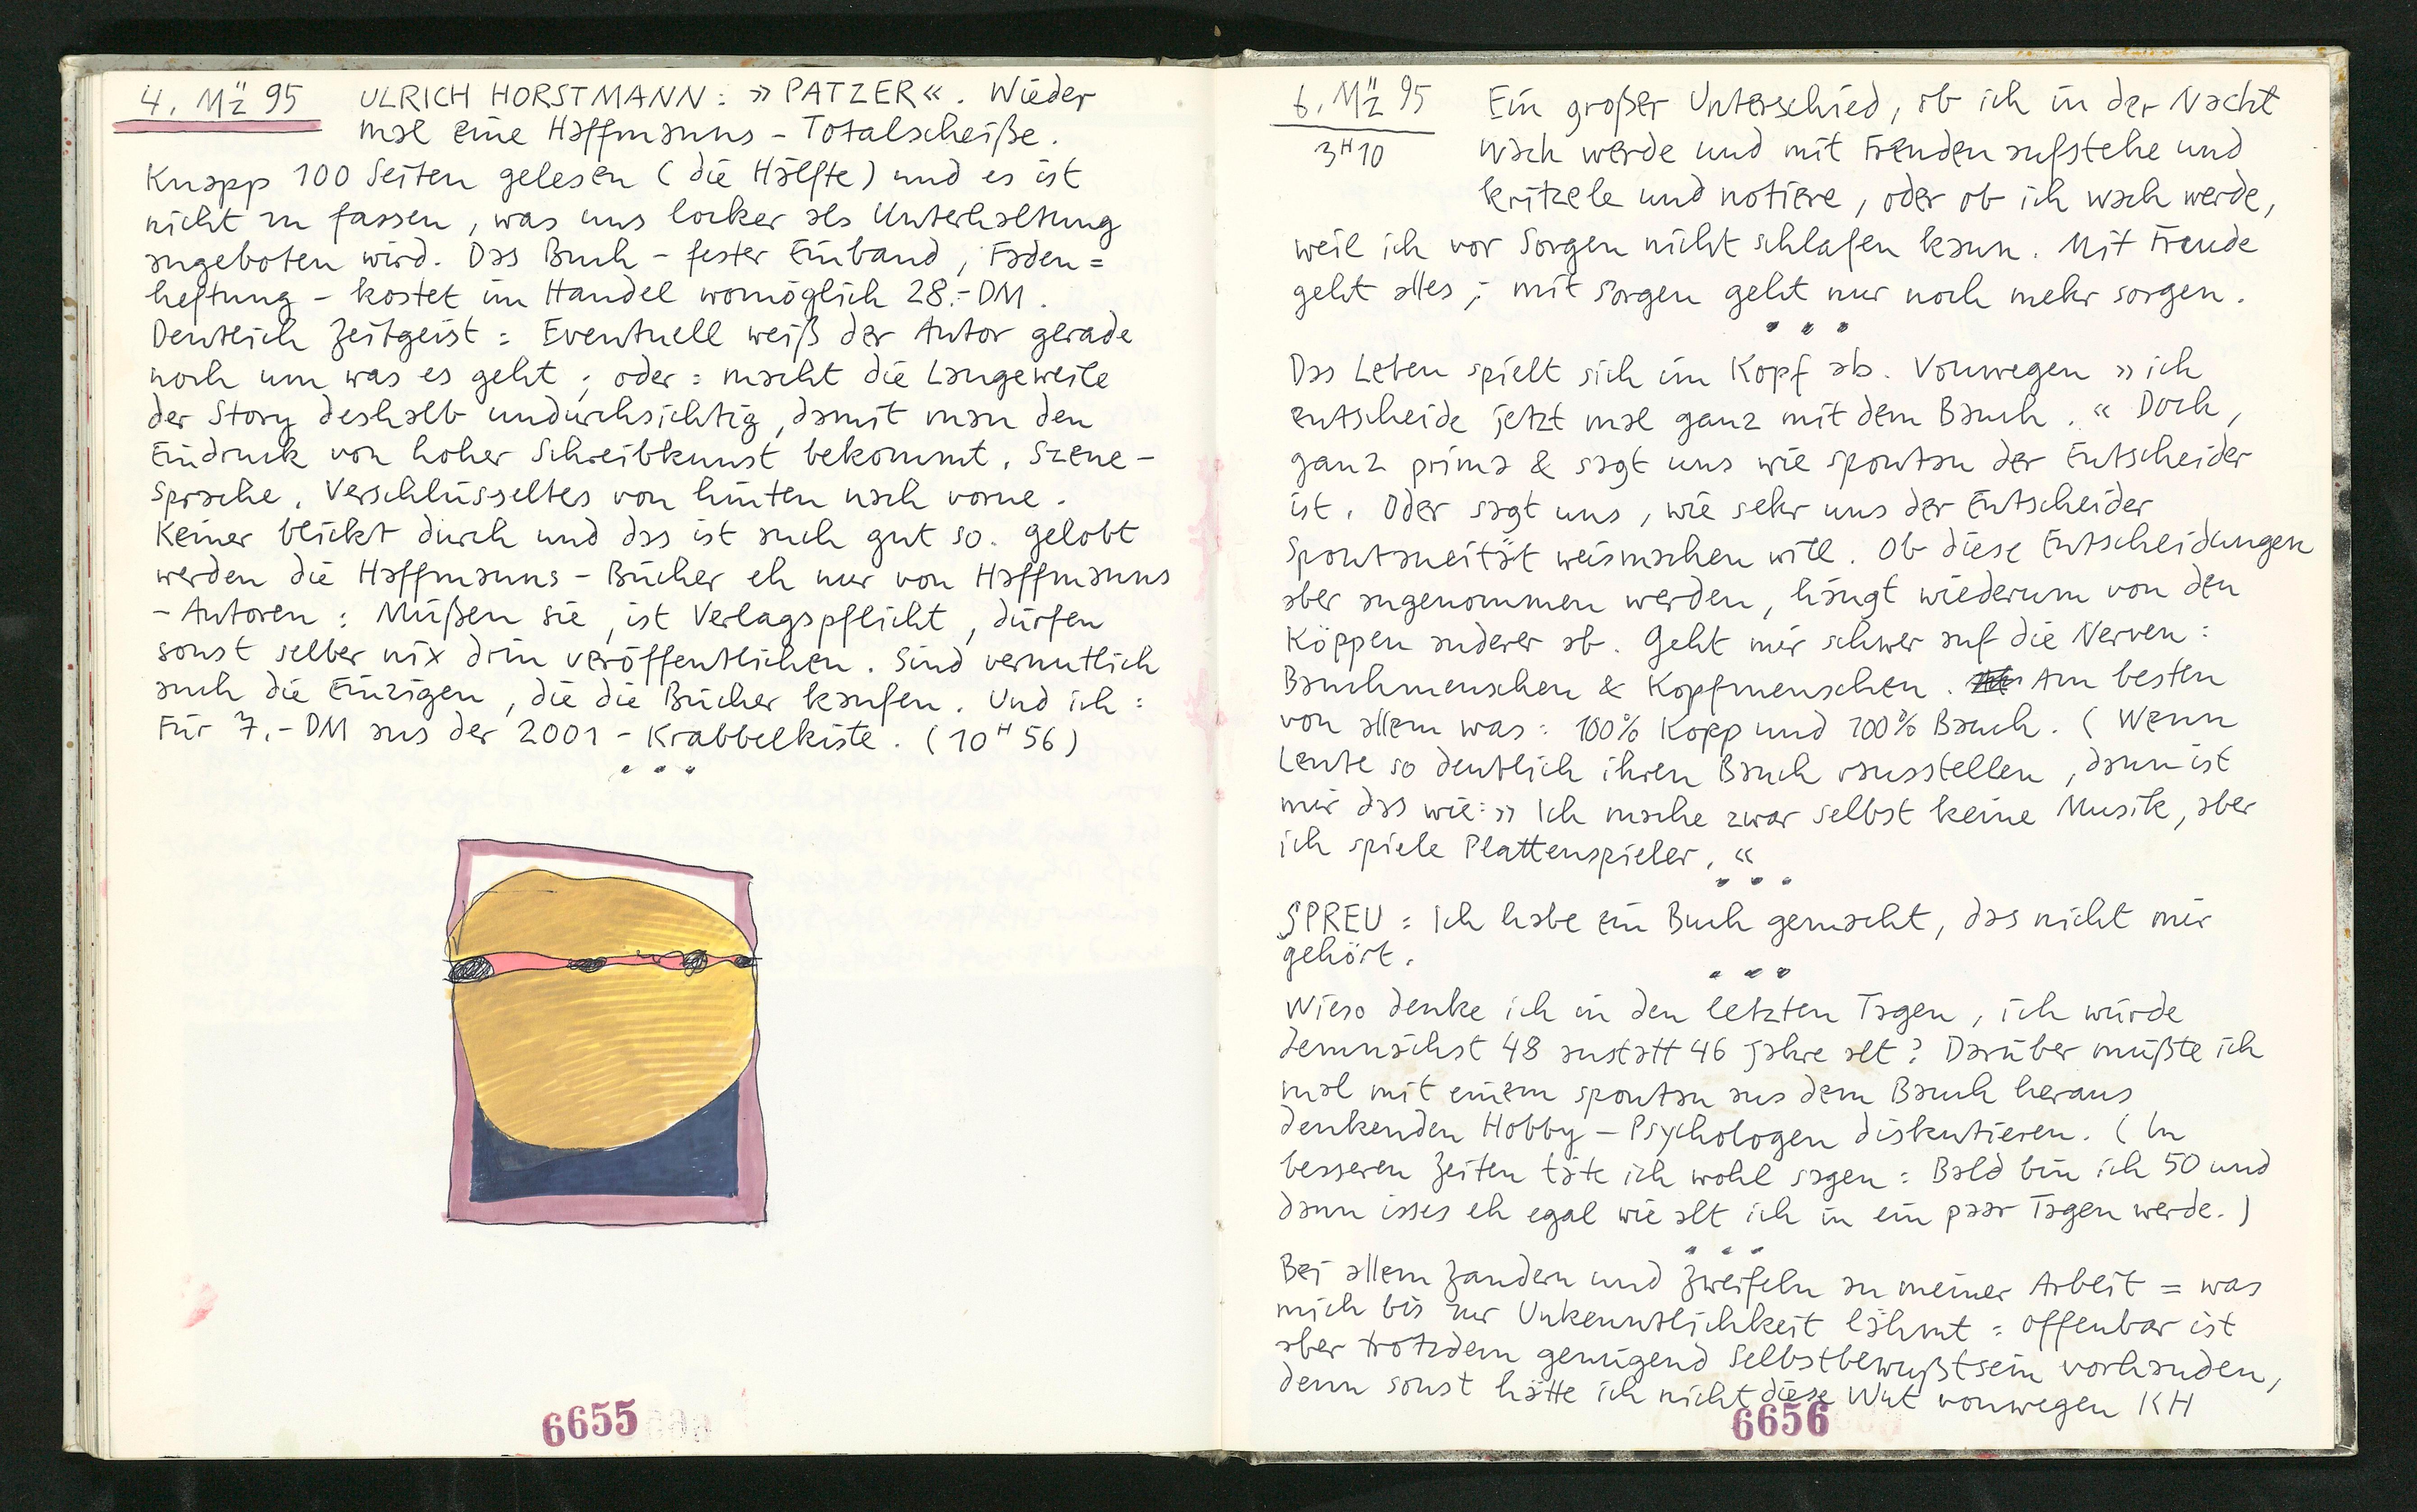 4. Mz̈ 95 ULRICH HORSTMANN: »PATZER«. Wieder
mal eine Haffmanns-Totalscheiße.
Knapp 100 Seiten gelesen (die Hälfte) und es ist
nicht zu fassen, was uns locker als Unterhaltung
angeboten wird. Das Buch - fester Einband, Faden=
heftung - kostet im Handel womöglich 28.-DM.
Deutlich Zeitgeist: Eventuell weiß der Autor gerade
noch um was es geht; oder: macht die Langeweile
der Story deshalb undurchsichtig, damit man den
Eindruck von hoher Schreibkunst bekommt. Szene-
sprache. Verschlüsseltes von hinten nach vorne.
Keiner blickt durch und das ist auch gut so. Gelobt
werden die Haffmanns-Bücher eh nur von Haffmanns
-Autoren: Müßen sie, ist Verlagspflicht, dürfen
sonst selber nix drin veröffentlichen. Sind vermutlich
auch die Einzigen, die die Bücher kaufen. Und ich:
Für 7.-DM aus der 2001-Krabbelkiste. (10ᴴ56)
...
6655
6. Mz̈ 95 Ein großer Unterschied, ob ich in der Nacht
3ᴴ10 wach werde und mit Freuden aufstehe und
kritzele und notiere, oder ob ich wach werde,
weil ich vor Sorgen nicht schlafen kann. Mit Freude
geht alles; mit Sorgen geht nur noch mehr sorgen.
...
Das Leben spielt sich im Kopf ab. Vonwegen »ich
entscheide jetzt mal ganz mit dem Bauch.« Doch,
ganz prima & sagt uns wie spontan der Entscheider
ist. Oder sagt uns, wie sehr uns der Entscheider
Spontaneität weismachen will. Ob diese Entscheidungen
aber angenommen werden, hängt wiederum von den
Köppen anderer ab. Geht mir schwer auf die Nerven:
Bauchmenschen & Kopfmenschen. Am besten
von allem was: 100% Kopp und 100% Bauch. (Wenn
Leute so deutlich ihren Bauch rausstellen, dann ist
mir das wie: »Ich mache zwar selbst keine Musik, aber
ich spiele Plattenspieler.«
...
SPREU: Ich habe ein Buch gemacht, das nicht mir
gehört.
...
Wieso denke ich in den letzten Tagen, ich würde
demnächst 48 anstatt 46 Jahre alt? Darüber müßte ich
mal mit einem spontan aus dem Bauch heraus
denkenden Hobby-Psychologen diskutieren. (In
besseren Zeiten täte ich wohl sagen: Bald bin ich 50 und
dann isses eh egal wie alt ich in ein paar Tagen werde.)
...
Bei allem Zaudern und Zweifeln an meiner Arbeit = was
mich bis zur Unkenntlichkeit lähmt: offenbar ist
aber trotzdem genügend Selbstbewußtsein vorhanden,
denn sonst hätte ich nicht diese Wut vonwegen KH
6656